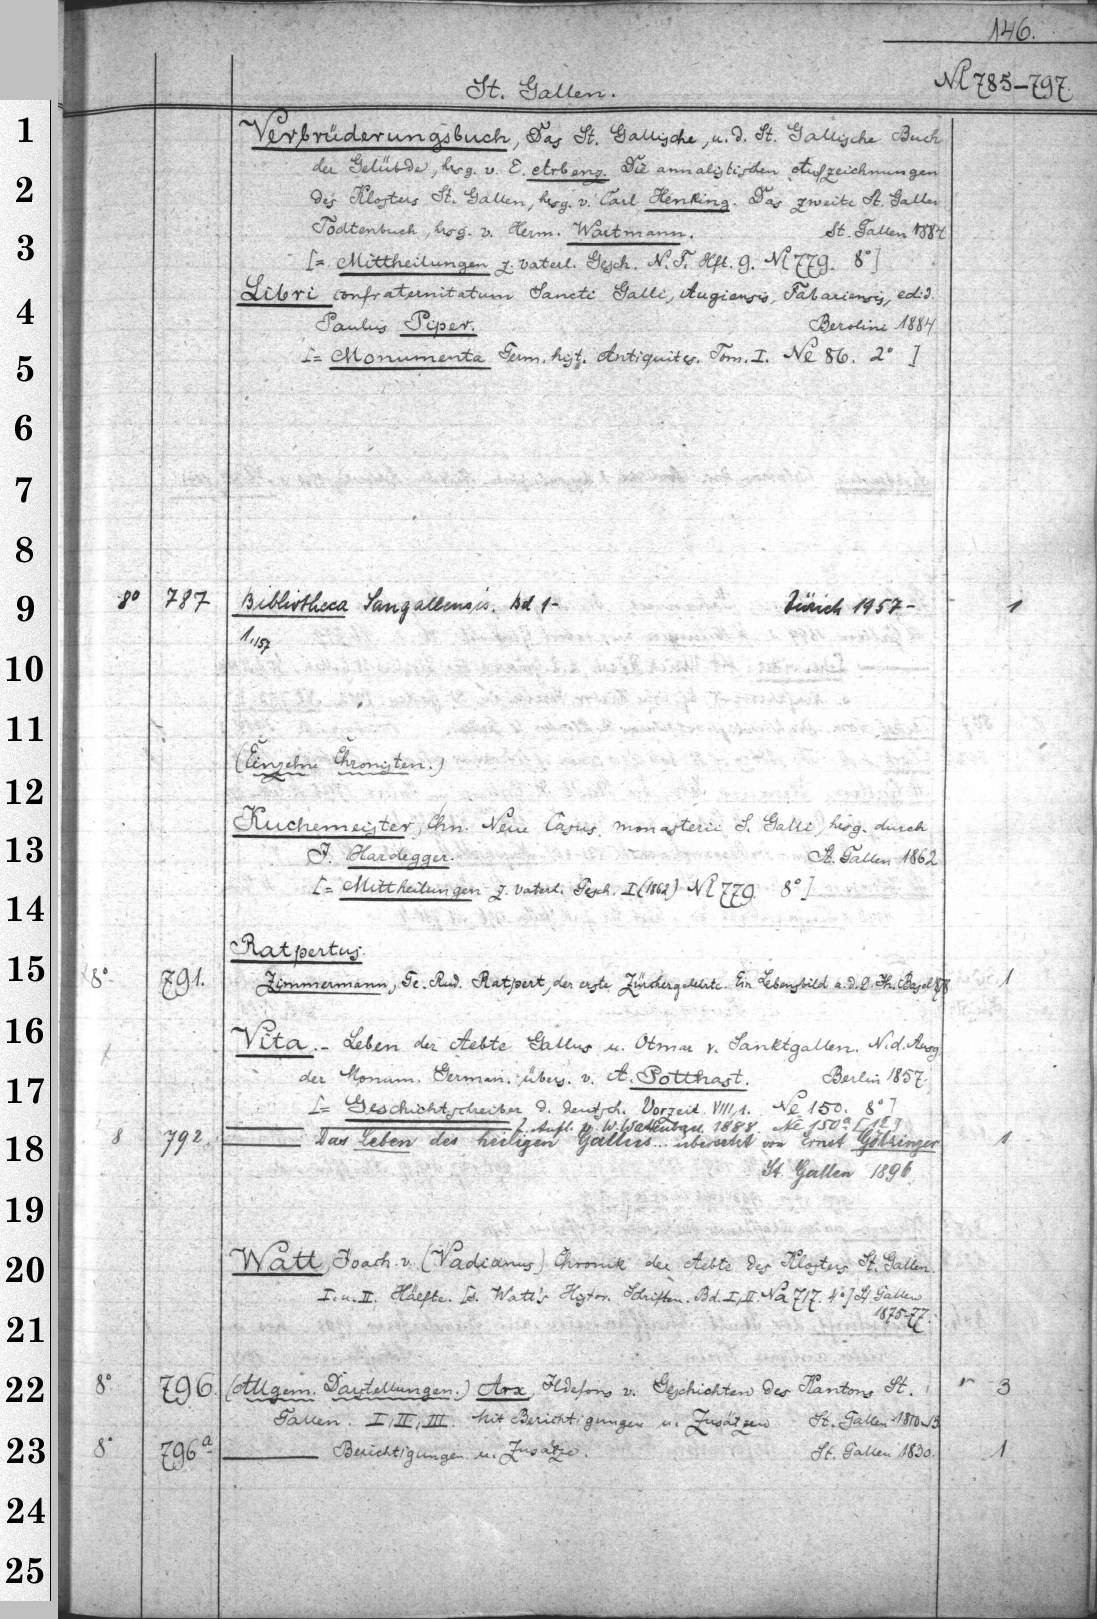 146.
St. Gallen. Nl 785-797.
1 Verbrüderungsbuch, Das St. Gallische, u. d. St. Gallische Buch
2 der Gelübde, hrsg. v. E. Arbenz. Die annalistischen Aufzeichnungen
des Klosters St. Gallen, hrsg. v. Carl Henking. Das zweite St. Galler
3 Todtenbuch, hrsg. v. Herm. Wartmann. St. Gallen 1884
[= Mittheilungen z. vaterl. Gesch. N. F. Hft. 9. Nl 779. 8°]
4 Libri confraternitatum Sancti Galli, Augiensis, Fabariensis, edid.
Paulus Piper. Berolini 1884
5 [= Monumenta Germ. hist. Antiquites. Tom. I. Ne 86. 2° ]
6
7
8
9 8° 787 Bibliotheca Sangallensis. Bd 1- Zürich 1957- 1
1.157
10
11
(Einzelne Chronisten.)
12
Kuchemeister, Chn. Neue Casus monasterii S. Galli, hrsg. durch
13 J. Hardegger. St. Gallen 1862
[= Mittheilungen z. vaterl. Gesch. I (1862) Nl 779. 8°]
14
Ratpertus.
15 8° 791. Zimmermann, Ge. Rud. Ratpert, der erste Zürchergelehrte. Ein Lebensbild a. d. 9. Jh. Basel 878 1
16 Vita.- Leben der Aebte Gallus u. Otmar v. Sanktgallen. N. d. Ausg.
17 der Monum. German. übers. v. A. Potthast. Berlin 1857.
[= Geschichtschreiber d. deutsch. Vorzeit VIII,1. Ne 150. 8°]
2. Aufl. v. W. Wattenbach. 1888. Ne 150a [12]
18 8 792. Das Leben des heiligen Gallus.. übersetzt von Ernst Götzinger 1
St. Gallen 1896.
19
20 Watt, Joach. v. (Vadianus) Chronik der Aebte des Klosters St. Gallen.
I. u. II. Hälfte. [d. Watt's Histor. Schriften. Bd. I, II. Na 717. 4°] St. Gallen
21 1875-77.
22 8° 796. (Allgem. Darstellungen.) Arx, Ildefons v. Geschichten des Kantons St. 3
Gallen. I, II, III. Mit Berichtigungen u. Zusätzen St. Gallen 1810-13
23 8° 796a Berichtigungen u. Zusätze. St. Gallen 1830. 1
24
25